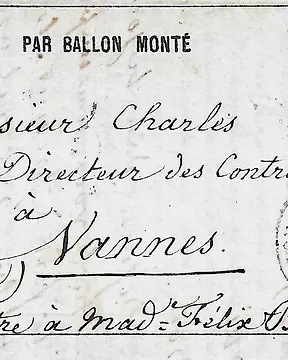 PAR BALLON MONTÉ
sieur Charles
Directeur des Contr
à
Vannes.
tre à Mad.e Félix